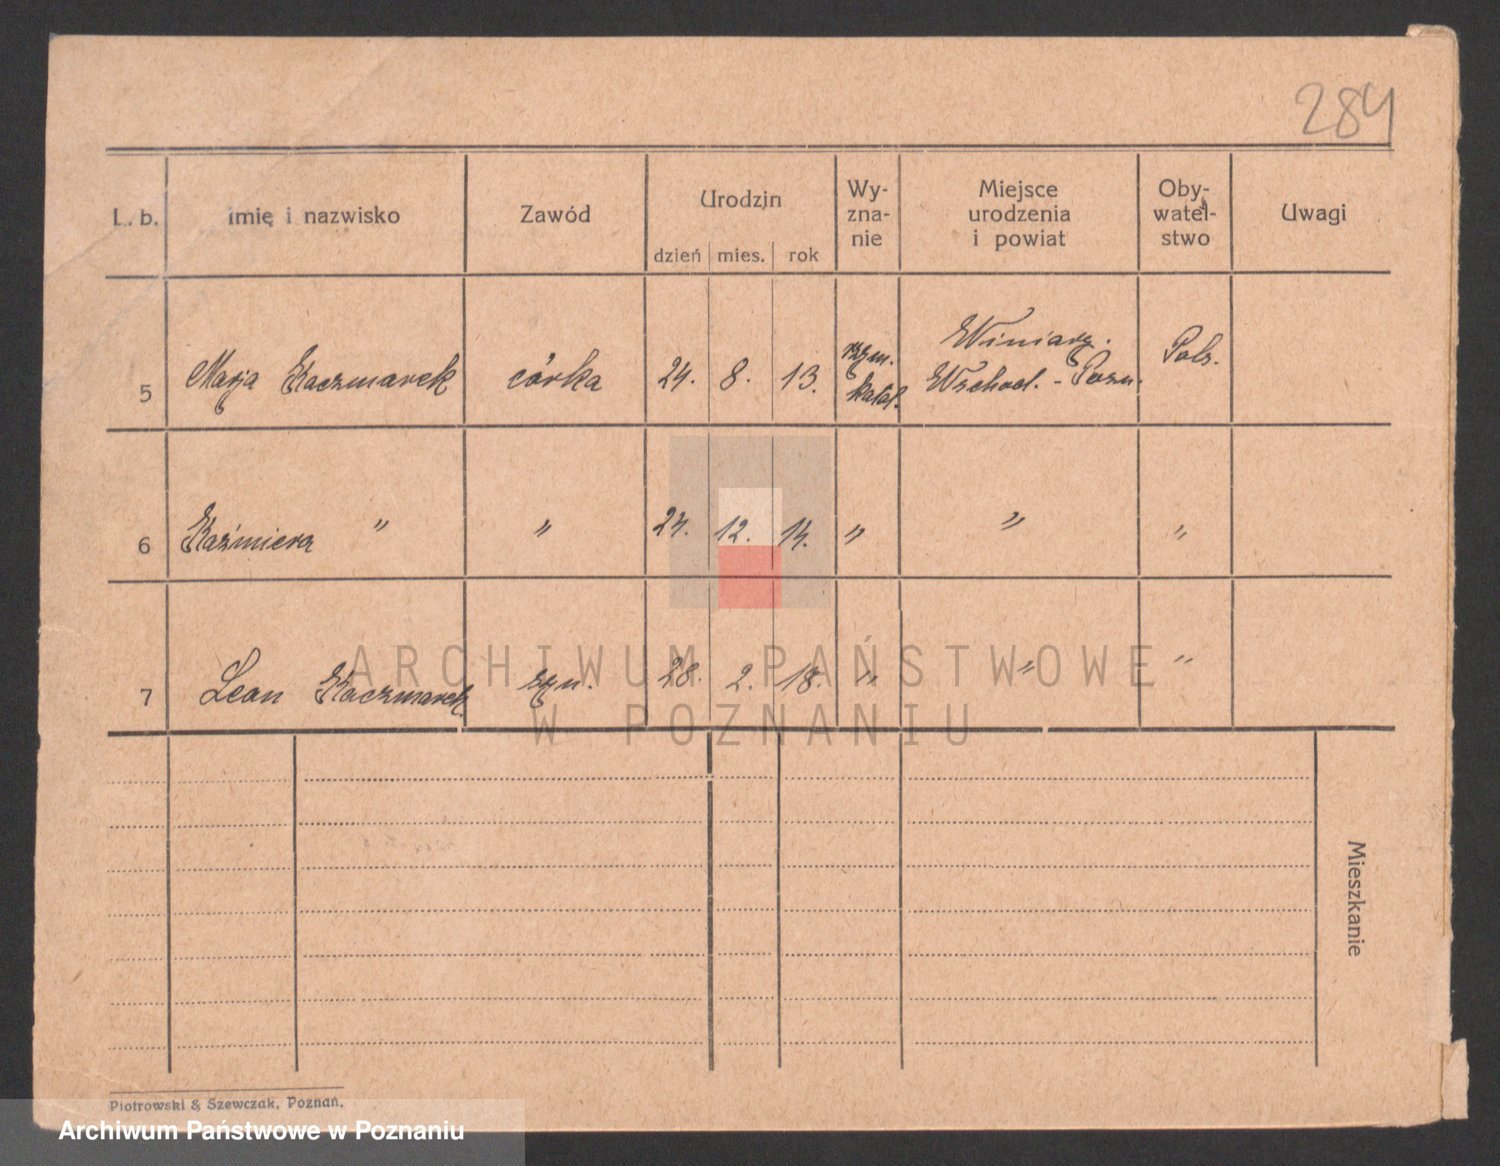 284
L. b. imię i nazwisko Zawód Urodzin Wy-zna-nie Miejsce urodzenia i powiat Oby-watel-stwo Uwagi
dzień mies. rok
5 Marja Kaczmarek córka 24. 8. 13. rzym. katol. Winiary. Wschod. - Pozn. Pols.
6 Kaźmiera " " 24. 12. 14. " " "
7 Leon Kaczmarek syn. 28. 2. 18. " " "
ARCHIWUM PAŃSTWOWE
W POZNANIU
Mieszkanie
Piotrowski & Szewczak, Poznań.
Archiwum Państwowe w Poznaniu